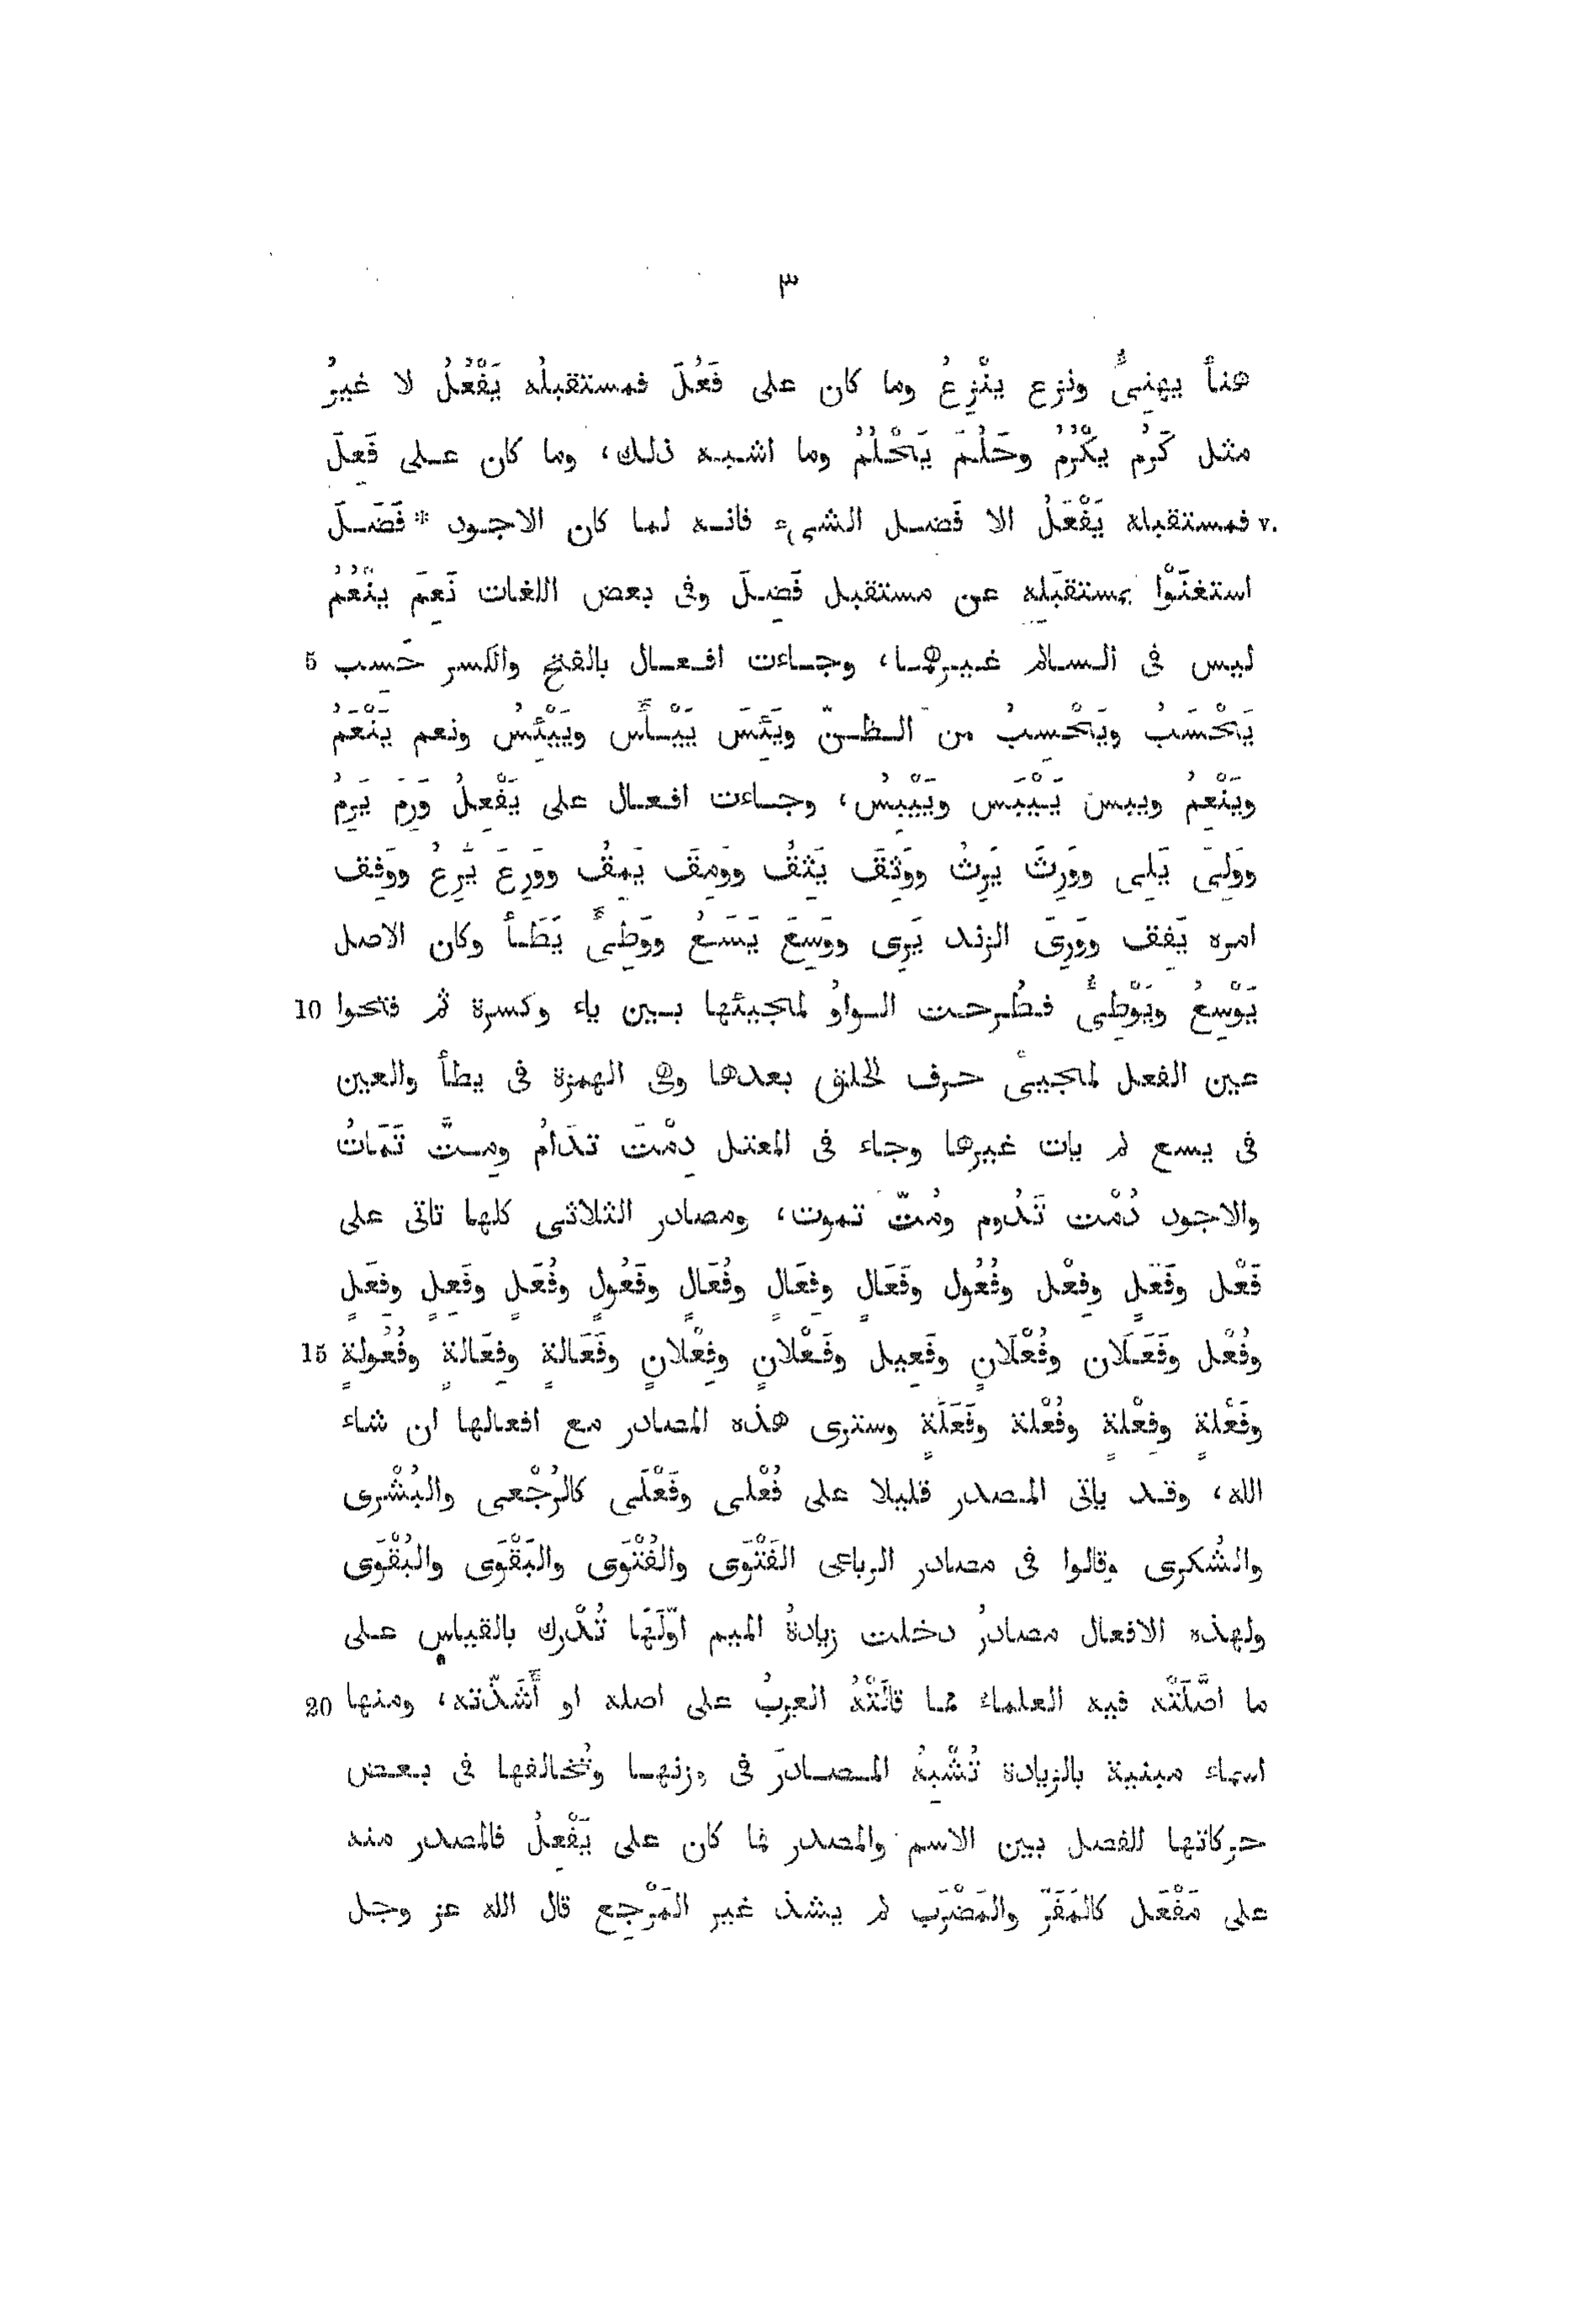 ٣
هنأ يهنِئُ ونزع ينْزِعُ وما كان على فَعُلَ فمستقبلُه يَفْعُلُ لا غيرُ
مثل كَرُم يكْرُمُ وحَلُمَ يَحْلُمُ وما اشبه ذلك، وما كان على فَعِلَ
v. فمستقبله يَفْعَلُ الا فَضِل الشىء فانه لما كان الاجود * فَضَلَ
استغنَوْا بمستقبَلِه عن مستقبل فَضِلَ وفى بعض اللغات نَعِمَ ينْعُمُ
ليس فى السالم غيرهما، وجاءت افعال بالفتح والكسر حَسِب 5
يَحْسَبُ ويَحْسِبُ من الظنّ ويَئِسَ يَيْأَس ويَيْئِسُ ونعم يَنْعَمُ
ويَنْعِمُ ويبس يَيْبَس ويَيْبِسُ، وجاءت افعال على يَفْعِلُ وَرِمَ يَرِمُ
ووَلِىَ يَلِى ووَرِثَ يَرِثُ ووَثِقَ يَثِقُ ووَمِقَ يَمِقُ ووَرِعَ يَرِعُ ووَفِقَ
امره يَفِق ووَرِىَ الزند يَرِى ووَسِعَ يَسَعُ ووَطِئَ يَطَأ وكان الاصل
يَوْسِعُ ويَوْطِئُ فطُرحت الواوُ لمجيئها بين ياء وكسرة ثم فتحوا 10
عين الفعل لمجيىء حرف الحلق بعدها وهى الهمزة فى يطأ والعين
فى يسع لم يات غيرها وجاء فى المعتل دِمْتَ تدَامُ ومِتَّ تَمَاتُ
والاجود دُمْت تَدُوم ومُتّ تموت، ومصادر الثلاثى كلها تاتى على
فَعْل وفَعَلٍ وفِعْل وفُعُول وفَعَالٍ وفِعَالٍ وفُعَالٍ وفَعُولٍ وفُعَلٍ وفَعِلٍ وفِعَلٍ
وفُعْل وفَعَلَان وفُعْلَانٍ وفَعِيل وفَعْلانٍ وفِعْلانٍ وفَعَالةٍ وفِعَالةٍ وفُعُولةٍ 15
وفَعْلةٍ وفِعْلةٍ وفُعْلة وفَعَلَةٍ وسترى هذه المصادر مع افعالها ان شاء
الله، وقد ياتى المصدر قليلا على فُعْلى وفَعْلَى كالرُجْعى والبُشْرى
والشُكرى وقالوا فى مصادر الرباعى الفَتْوَى والفُتْوَى والبَقْوَى والبُقْوَى
ولهذه الافعال مصادرُ دخلت زيادةُ الميم اوّلَها تُدْرك بالقياسِ على
ما اصَّلَتْه فيه العلماء مما قالَتْهُ العربُ على اصله او أَشَذّته، ومنها 20
اسماء مبنية بالزيادة تُشْبِهُ المصادرَ فى وزنها وتُخالفها فى بعض
حركاتها للفصل بين الاسم والمصدر فما كان على يَفْعِلُ فالمصدر منه
على مَفْعَل كالمَفَرّ والمَضْرَب لم يشذ غير المَرْجِع قال الله عز وجل